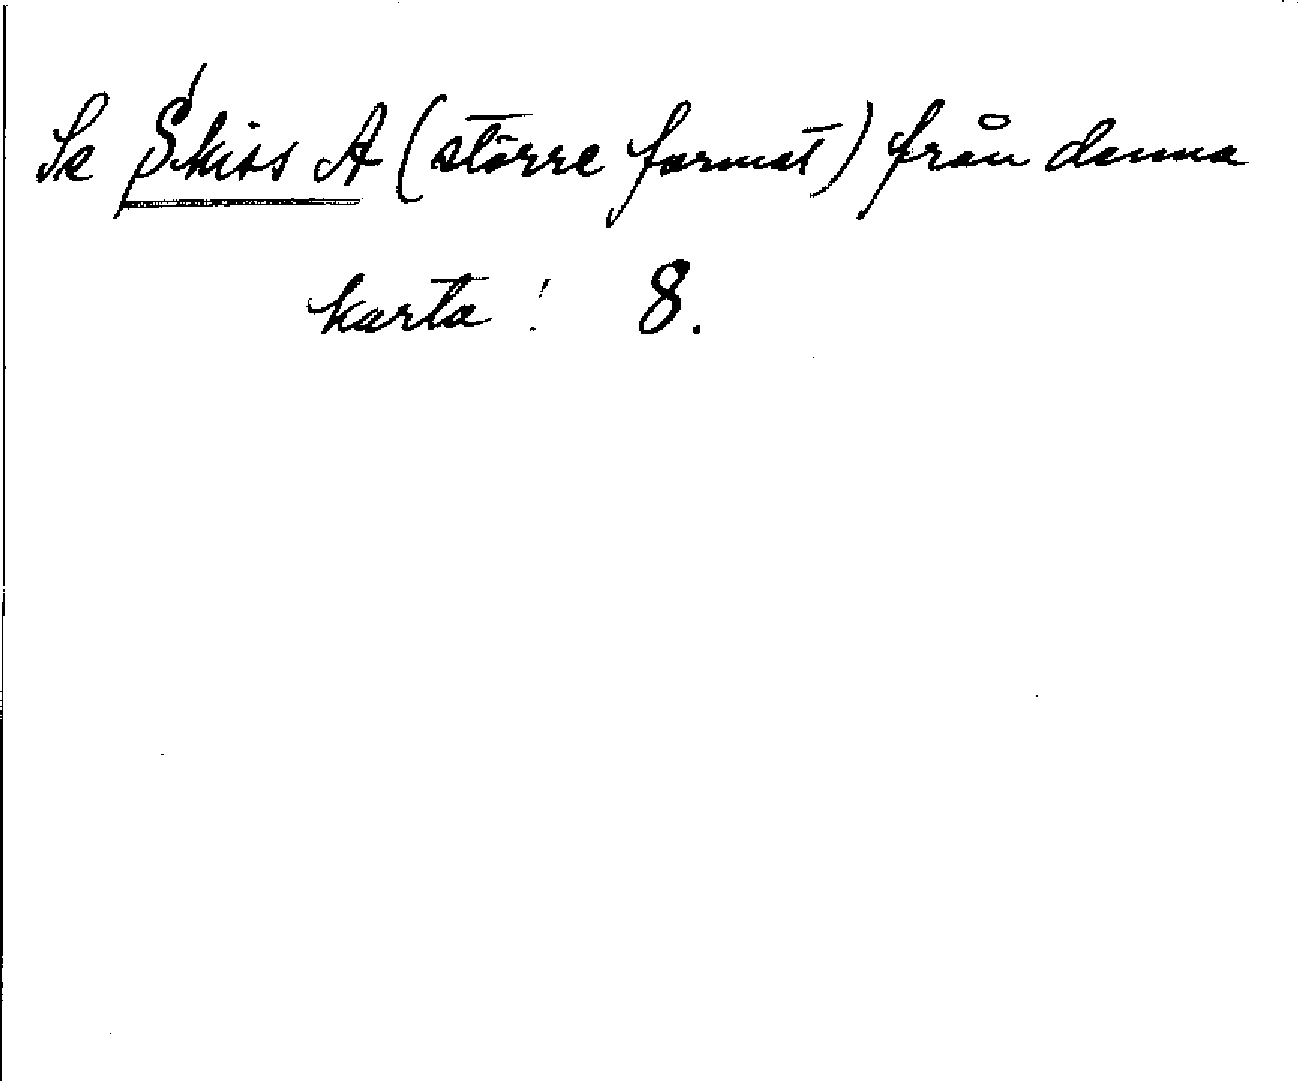 Se Skiss A (större format) från denna
karta! 8.